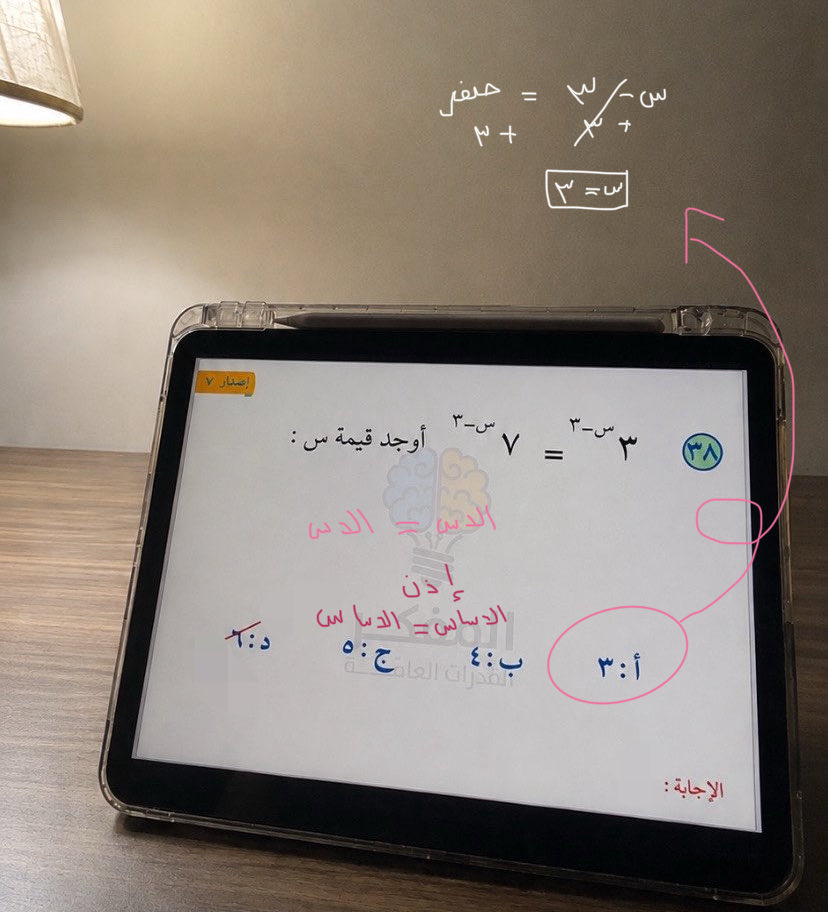 س - ٣ = صفر
+ ٣ + ٣
س = ٣
إصدار ٧
٣٨ ٣^س-٣ = ٧^س-٣ أوجد قيمة س :
الاس = الاس
إذن
الاساس = الاساس
المفكر
القدرات العامة
أ : ٣ ب : ٤ ج : ٥ د : ٦
الإجابة :